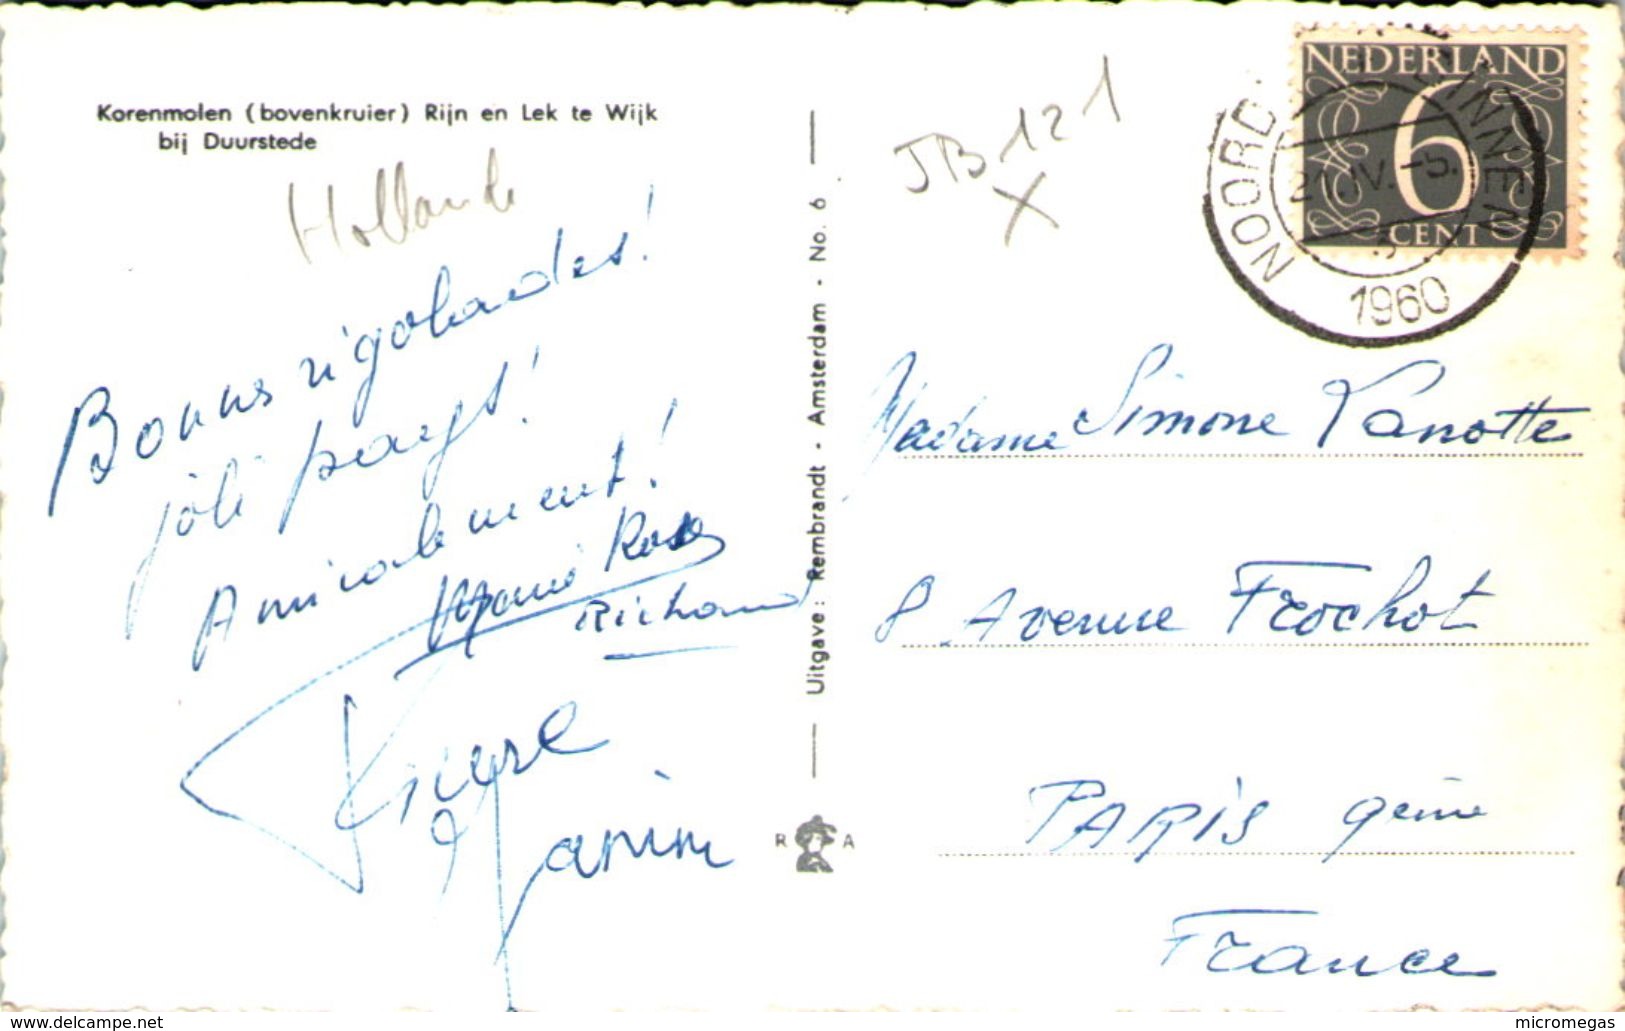 Korenmolen (bovenkruier) Rijn en Lek te Wijk
bij Duurstede
Hollande
Bonnes rigolades!
joli pays!
Amicalement!
Marie Rose
Richard
Pierre
Janin
Uitgave: Rembrandt - Amsterdam - No. 6
R A
JB 121
X
NEDERLAND
6
CENT
NOORD
BINNEN
21.IV.-5.
1960
Madame Simone Vanotte
8 Avenue Frochot
PARIS 9ème
France
www.delcampe.net
micromegas